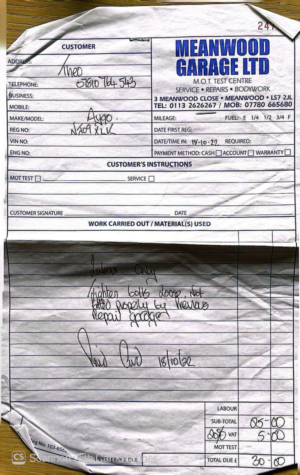 CUSTOMER
MEANWOOD
GARAGE LTD
M.O.T. TEST CENTRE
SERVICE • REPAIRS • BODYWORK
3 MEANWOOD CLOSE • MEANWOOD • LS7 2JL
TEL: 0113 2626267 / MOB: 07780 665680
Theo
TELEPHONE:
BUSINESS:
MOBILE:
MAKE/MODEL: Aygo
MILEAGE: FUEL: E 1/4 1/2 3/4 F
REG NO:
DATE FIRST REG:
VIN NO:
DATE/TIME IN: REQUIRED:
ENG NO:
PAYMENT METHOD: CASH ACCOUNT WARRANTY
CUSTOMER'S INSTRUCTIONS
MOT TEST SERVICE
CUSTOMER SIGNATURE DATE
WORK CARRIED OUT / MATERIAL(S) USED
Labour Only
Tighten bolts loose, Not
properly by Previous
Repair garage
Paid Card 18/10/22
LABOUR
SUB-TOTAL 25-00
20% VAT 5-00
MOT TEST
TOTAL DUE £ 30-00
CS